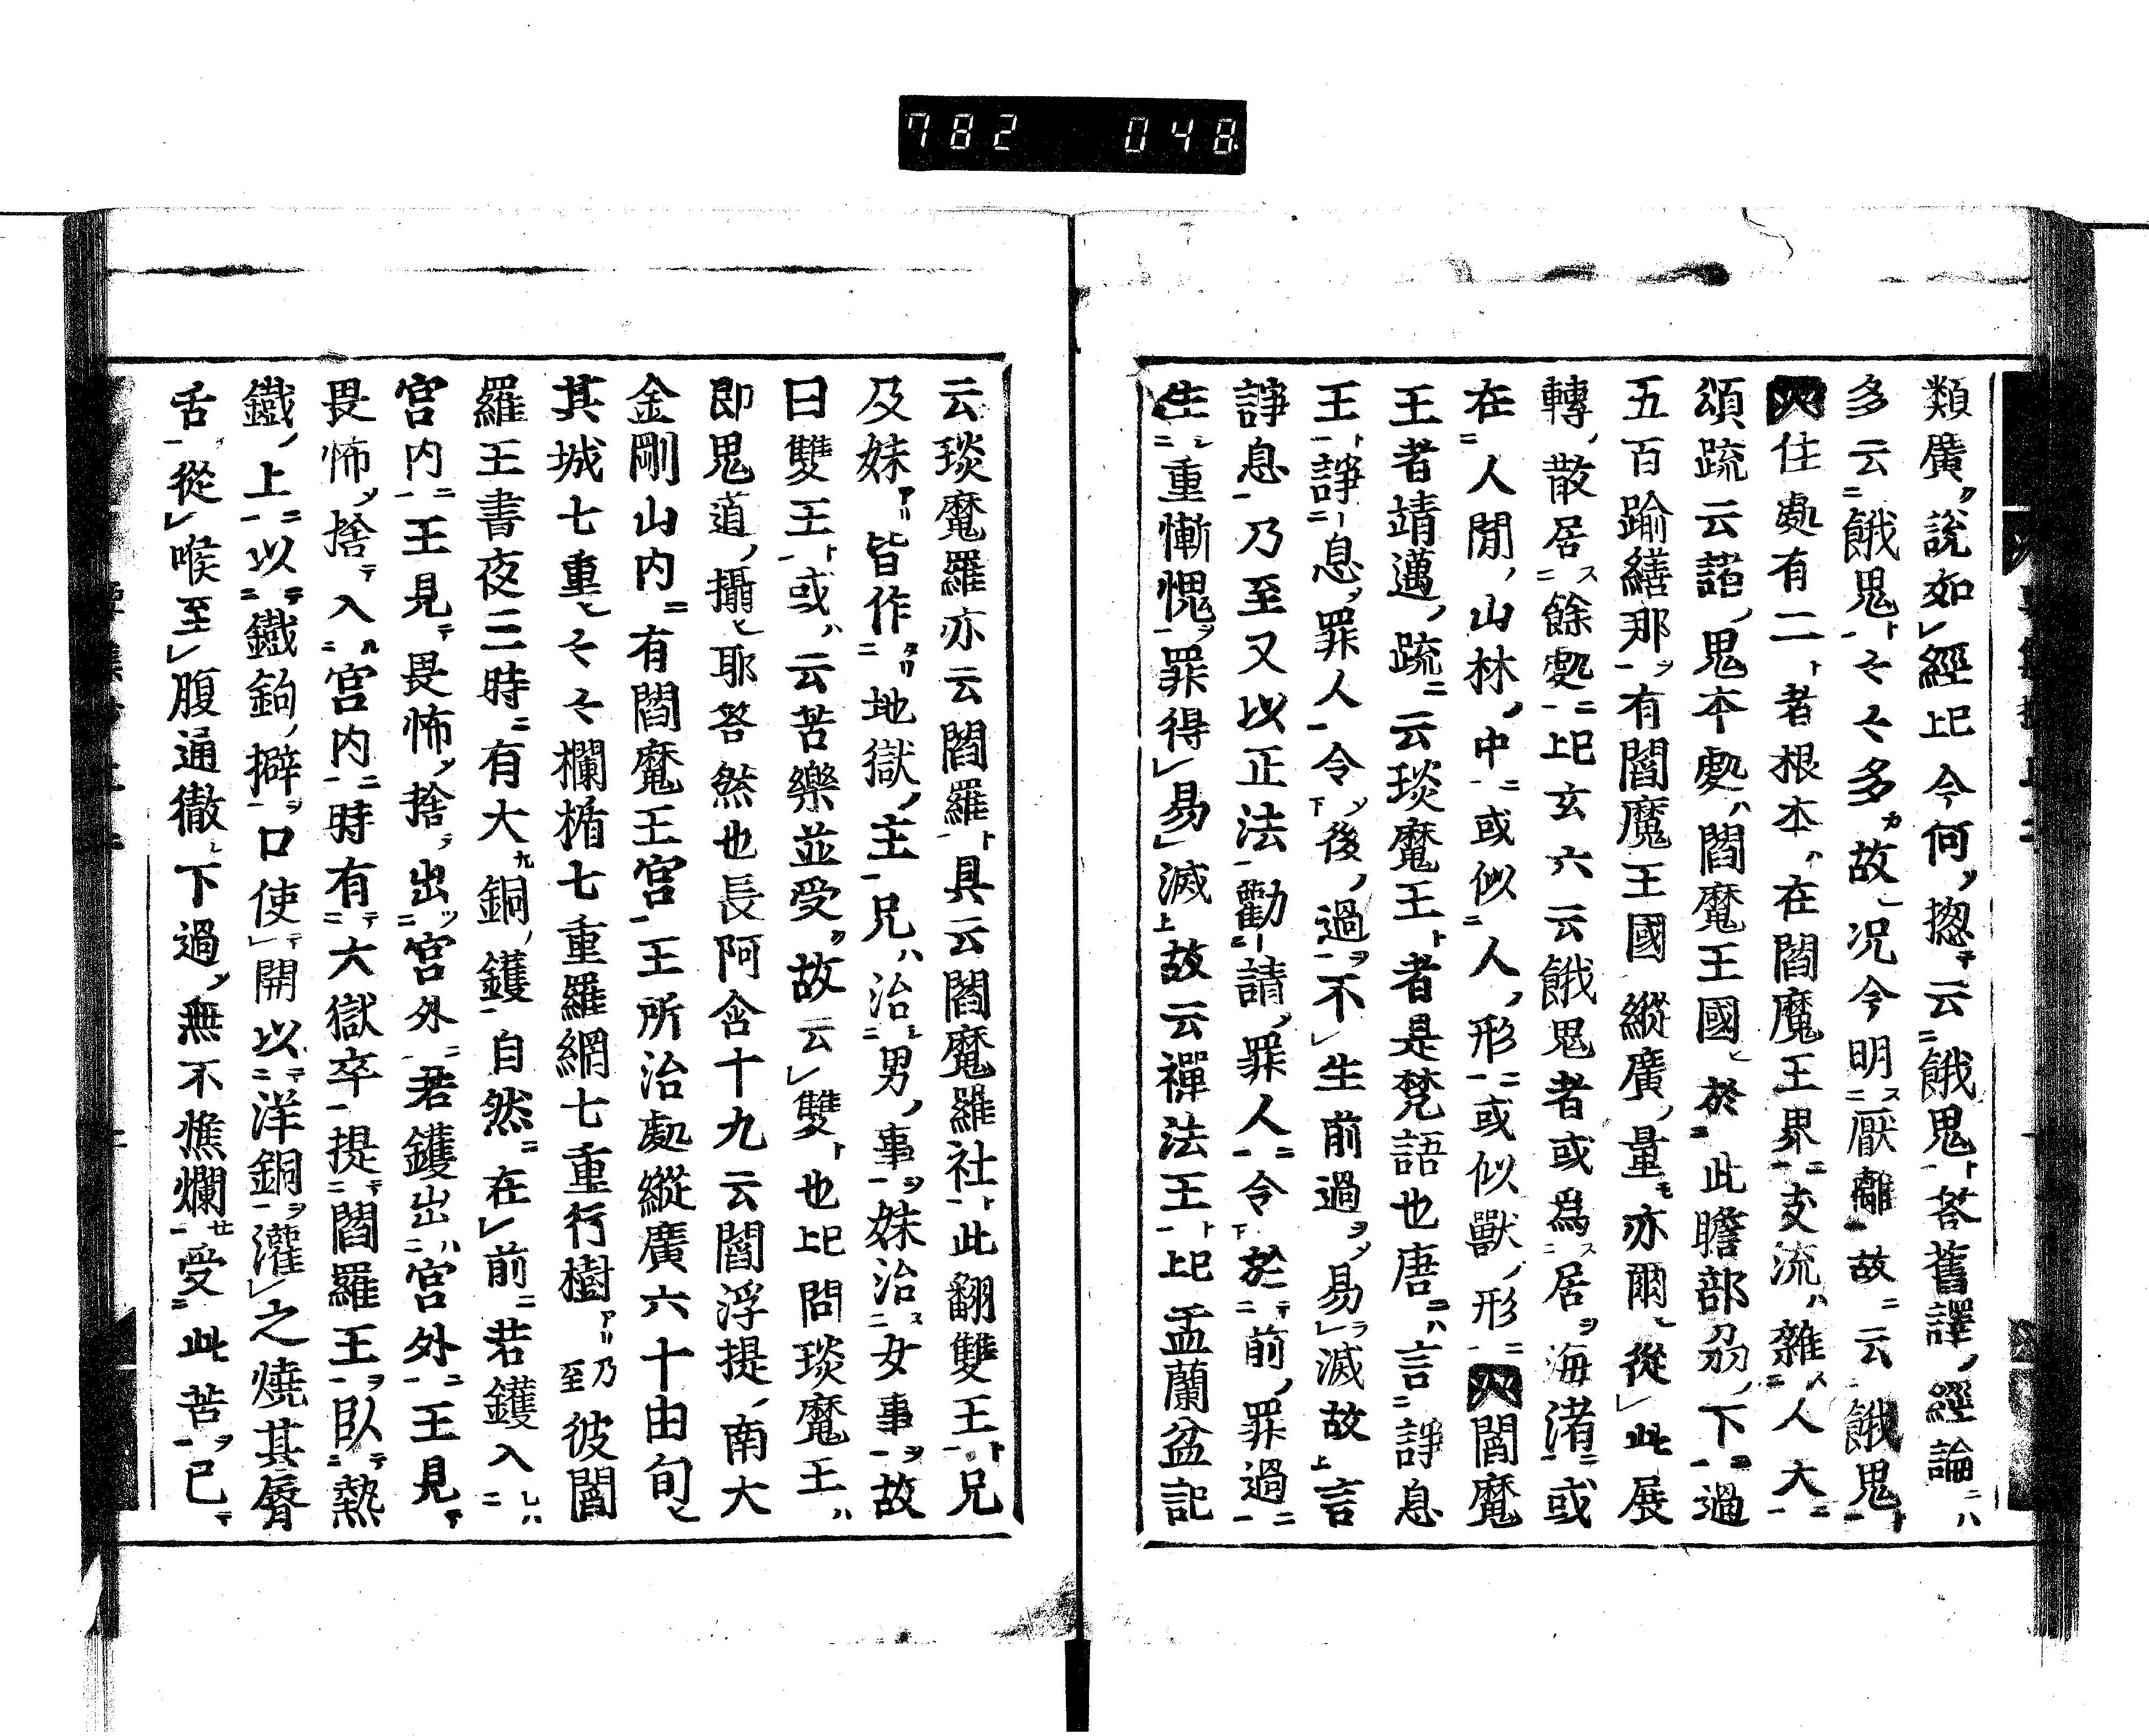 782 048
類廣説如經上已今何揔云餓鬼荅舊譯經論
多云餓鬼云云多故况今明厭離故云餓鬼
住處有二者根本在閻魔王界支流雜人大
頌疏云諸鬼本處閻魔王國於此瞻部刕下過
五百踰繕那有閻魔王國縱廣量亦爾從此展
轉散居餘處上已玄六云餓鬼者或爲居海渚或
在人間山林中或似人形或似獸形閻魔
王者靖邁疏云琰魔王者是梵語也唐言諍息
王諍息罪人令後過不生前過易滅故言
諍息乃至又以正法勸請罪人令於前罪過
生重慚愧罪得易滅故云禪法王上已盂蘭盆記
云琰魔羅亦云閻羅具云閻魔羅社此翻雙王兄
及妹皆作地獄主兄治男事妹治女事故
曰雙王或云苦樂並受故云雙也上已問琰魔王
即鬼道攝耶荅然也長阿含十九云閻浮提南大
金剛山内有閻魔王宮王所治處縱廣六十由旬
其城七重云云欄楯七重羅網七重行樹乃至彼閻
羅王晝夜三時有大銅鑊自然在前若鑊入
宮内王見畏怖捨出宮外若鑊出宮外王見
畏怖捨入宮内時有大獄卒提閻羅王臥熱
鐵上以鐵鉤擗口使開以洋銅灌之燒其脣
舌從喉至腹通徹下過無不燋爛受此苦已